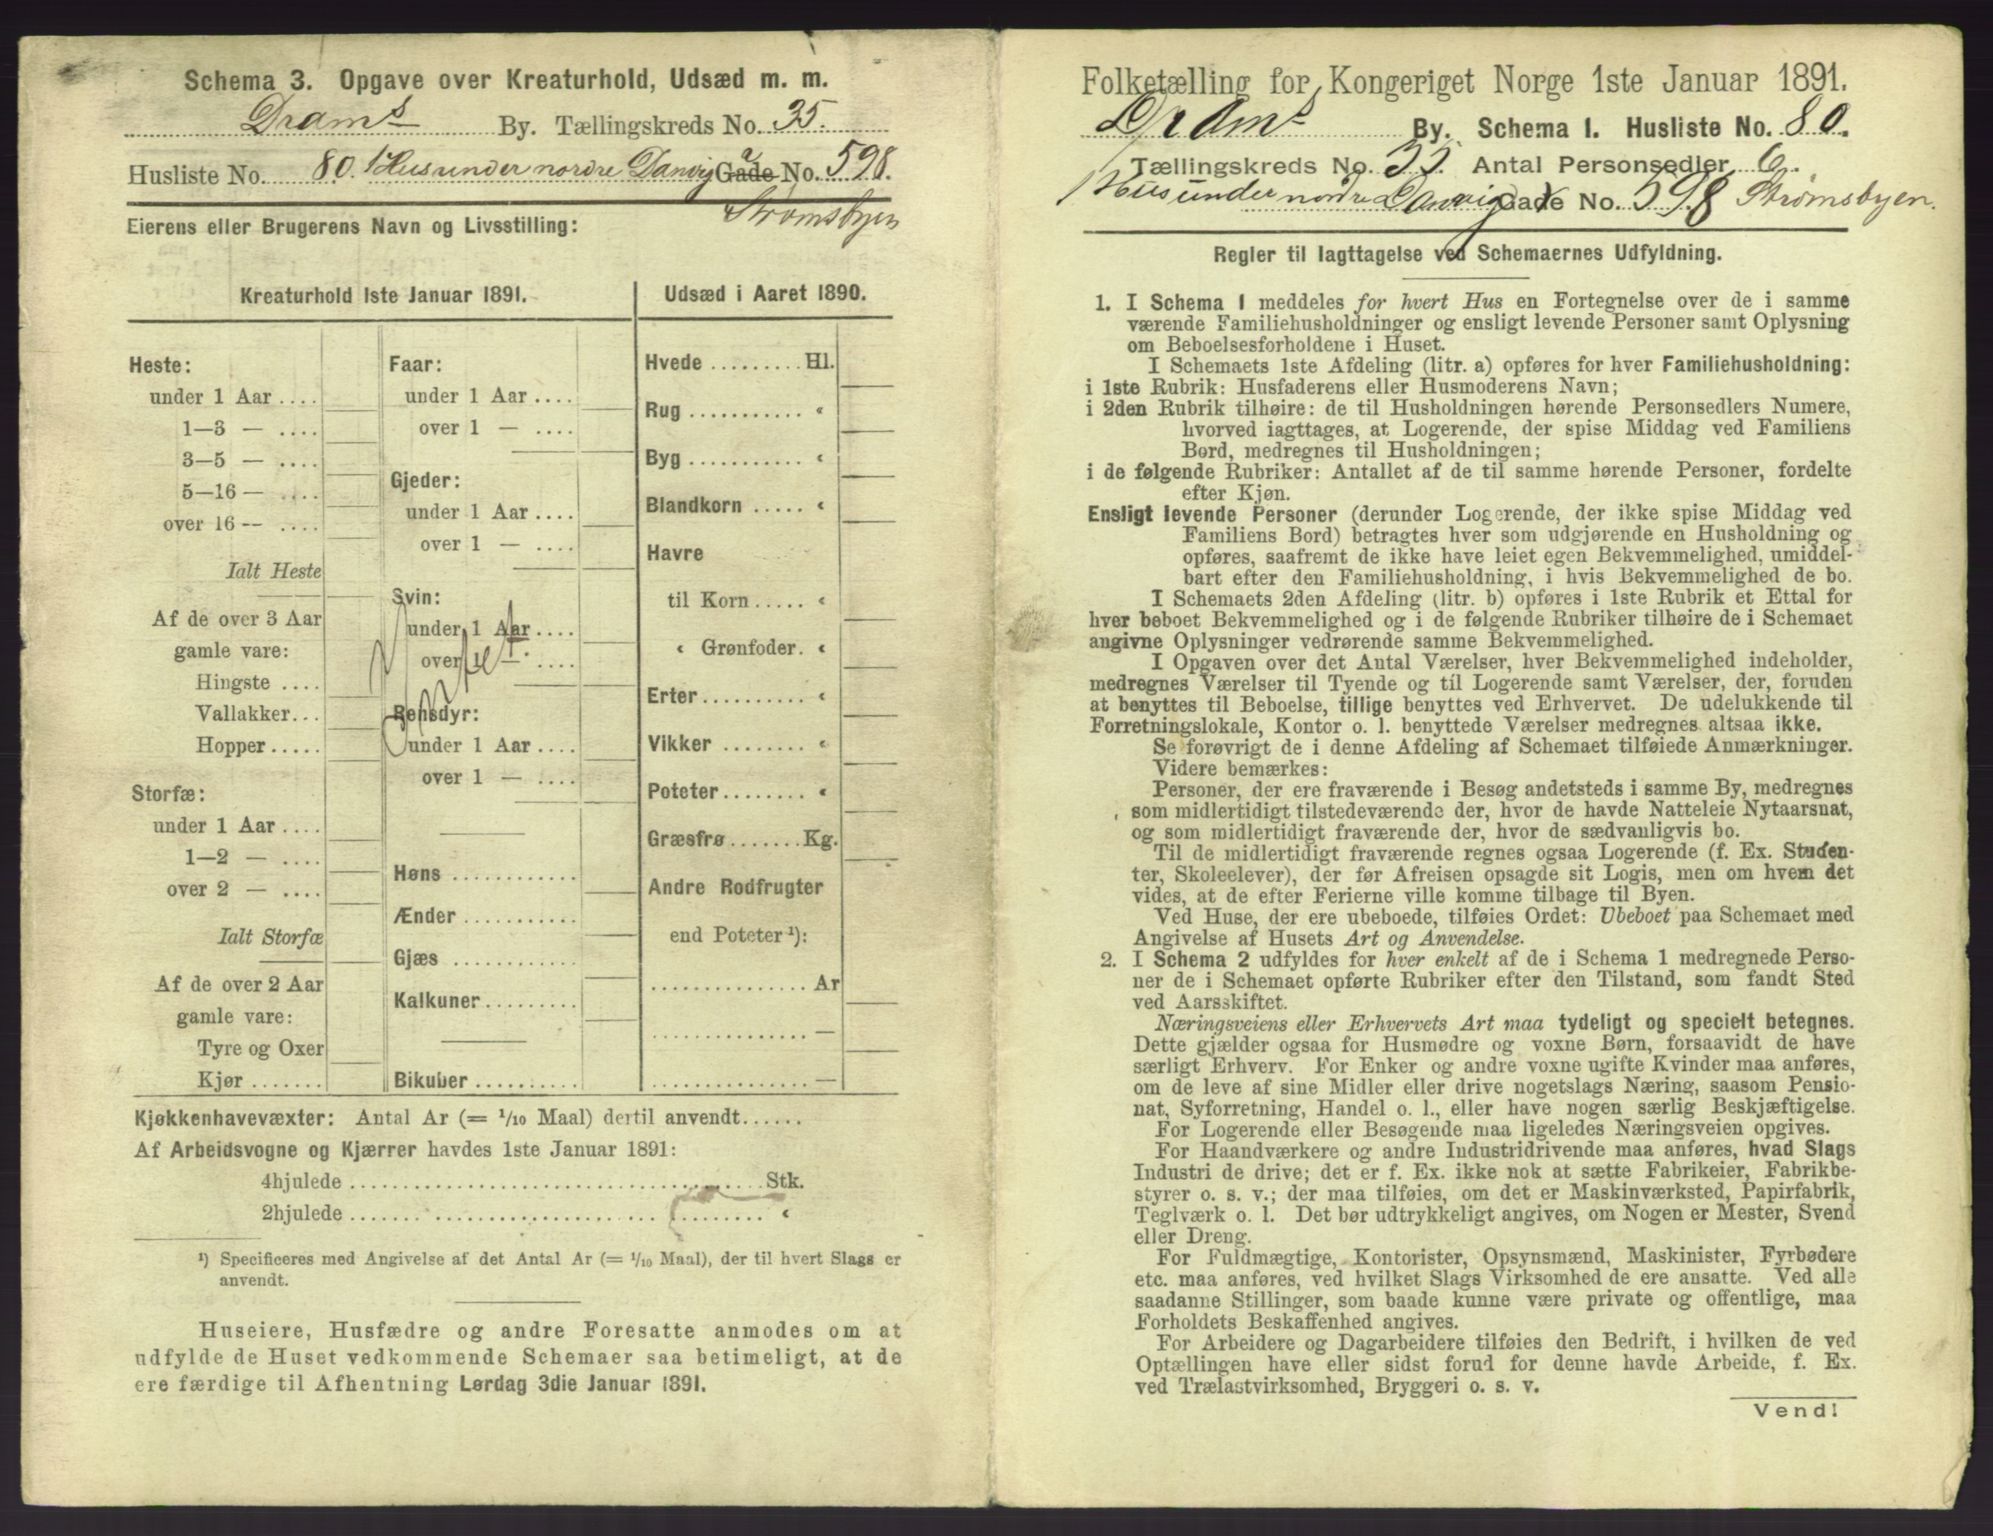 Schema 3. Opgave over Kreaturhold, Udsæd m. m.
Drams By. Tællingskreds No. 35.
Husliste No. 80. 1 Hus under nordre Danvig Gade No. 598.
Strømsbyen
Eierens eller Brugerens Navn og Livsstilling:
Kreaturhold 1ste Januar 1891.
Heste:
under 1 Aar....
1—3 — ....
3—5 — ....
5—16 — ....
over 16 -- ....
Ialt Heste
Af de over 3 Aar
gamle vare:
Hingste ....
Vallakker...
Hopper.....
Storfæ:
under 1 Aar....
1—2 — ....
over 2 — ....
Ialt Storfæ
Af de over 2 Aar
gamle vare:
Tyre og Oxer
Kjør.......
Faar:
under 1 Aar....
over 1 — ....
Gjeder:
under 1 Aar....
over 1 — ....
Svin:
under 1 Aar....
over 1 — ....
Rensdyr:
under 1 Aar....
over 1 — ....
Høns ............
Ænder ............
Gjæs ............
Kalkuner.........
Bikuber..........
Udsæd i Aaret 1890.
Hvede.........Hl.
Rug........... «
Byg........... «
Blandkorn..... «
Havre
til Korn..... «
« Grønfoder. «
Erter.......... «
Vikker ........ «
Poteter........ «
Græsfrø.......Kg.
Andre Rodfrugter
end Poteter ¹):
...............Ar
............... —
............... —
Kjøkkenhavevæxter: Antal Ar (= 1/10 Maal) dertil anvendt......
Af Arbeidsvogne og Kjærrer havdes 1ste Januar 1891:
4hjulede ........................................Stk.
2hjulede ........................................ «
¹) Specificeres med Angivelse af det Antal Ar (= 1/10 Maal), der til hvert Slags er
anvendt.
Huseiere, Husfædre og andre Foresatte anmodes om at
udfylde de Huset vedkommende Schemaer saa betimeligt, at de
ere færdige til Afhentning Lørdag 3die Januar 1891.
Folketælling for Kongeriget Norge 1ste Januar 1891.
Drams By. Schema 1. Husliste No. 80.
Tællingskreds No. 35. Antal Personsedler 6.
1 Hus under nordre Danvig Gade No. 598 Strømsbyen.
Regler til Iagttagelse ved Schemaernes Udfyldning.
1. I Schema 1 meddeles for hvert Hus en Fortegnelse over de i samme
værende Familiehusholdninger og ensligt levende Personer samt Oplysning
om Beboelsesforholdene i Huset.
I Schemaets 1ste Afdeling (litr. a) opføres for hver Familiehusholdning:
i 1ste Rubrik: Husfaderens eller Husmoderens Navn;
i 2den Rubrik tilhøire: de til Husholdningen hørende Personsedlers Numere,
hvorved iagttages, at Logerende, der spise Middag ved Familiens
Bord, medregnes til Husholdningen;
i de følgende Rubriker: Antallet af de til samme hørende Personer, fordelte
efter Kjøn.
Ensligt levende Personer (derunder Logerende, der ikke spise Middag ved
Familiens Bord) betragtes hver som udgjørende en Husholdning og
opføres, saafremt de ikke have leiet egen Bekvemmelighed, umiddel-
bart efter den Familiehusholdning, i hvis Bekvemmelighed de bo.
I Schemaets 2den Afdeling (litr. b) opføres i 1ste Rubrik et Ettal for
hver beboet Bekvemmelighed og i de følgende Rubriker tilhøire de i Schemaet
angivne Oplysninger vedrørende samme Bekvemmelighed.
I Opgaven over det Antal Værelser, hver Bekvemmelighed indeholder,
medregnes Værelser til Tyende og til Logerende samt Værelser, der, foruden
at benyttes til Beboelse, tillige benyttes ved Erhvervet. De udelukkende til
Forretningslokale, Kontor o. l. benyttede Værelser medregnes altsaa ikke.
Se forøvrigt de i denne Afdeling af Schemaet tilføiede Anmærkninger.
Videre bemærkes:
Personer, der ere fraværende i Besøg andetsteds i samme By, medregnes
som midlertidigt tilstedeværende der, hvor de havde Natteleie Nytaarsnat,
og som midlertidigt fraværende der, hvor de sædvanligvis bo.
Til de midlertidigt fraværende regnes ogsaa Logerende (f. Ex. Studen-
ter, Skoleelever), der før Afreisen opsagde sit Logis, men om hvem det
vides, at de efter Ferierne ville komme tilbage til Byen.
Ved Huse, der ere ubeboede, tilføies Ordet: Ubeboet paa Schemaet med
Angivelse af Husets Art og Anvendelse.
2. I Schema 2 udfyldes for hver enkelt af de i Schema 1 medregnede Perso-
ner de i Schemaet opførte Rubriker efter den Tilstand, som fandt Sted
ved Aarsskiftet.
Næringsveiens eller Erhvervets Art maa tydeligt og specielt betegnes.
Dette gjælder ogsaa for Husmødre og voxne Børn, forsaavidt de have
særligt Erhverv. For Enker og andre voxne ugifte Kvinder maa anføres,
om de leve af sine Midler eller drive nogetslags Næring, saasom Pensio-
nat, Syforretning, Handel o. l., eller have nogen særlig Beskjæftigelse.
For Logerende eller Besøgende maa ligeledes Næringsveien opgives.
For Haandværkere og andre Industridrivende maa anføres, hvad Slags
Industri de drive; det er f. Ex. ikke nok at sætte Fabrikeier, Fabrikbe-
styrer o. s. v.; der maa tilføies, om det er Maskinværksted, Papirfabrik,
Teglværk o. l. Det bør udtrykkeligt angives, om Nogen er Mester, Svend
eller Dreng.
For Fuldmægtige, Kontorister, Opsynsmænd, Maskinister, Fyrbødere
etc. maa anføres, ved hvilket Slags Virksomhed de ere ansatte. Ved alle
saadanne Stillinger, som baade kunne være private og offentlige, maa
Forholdets Beskaffenhed angives.
For Arbeidere og Dagarbeidere tilføies den Bedrift, i hvilken de ved
Optællingen have eller sidst forud for denne havde Arbeide, f. Ex.
ved Trælastvirksomhed, Bryggeri o. s. v.
Vend!